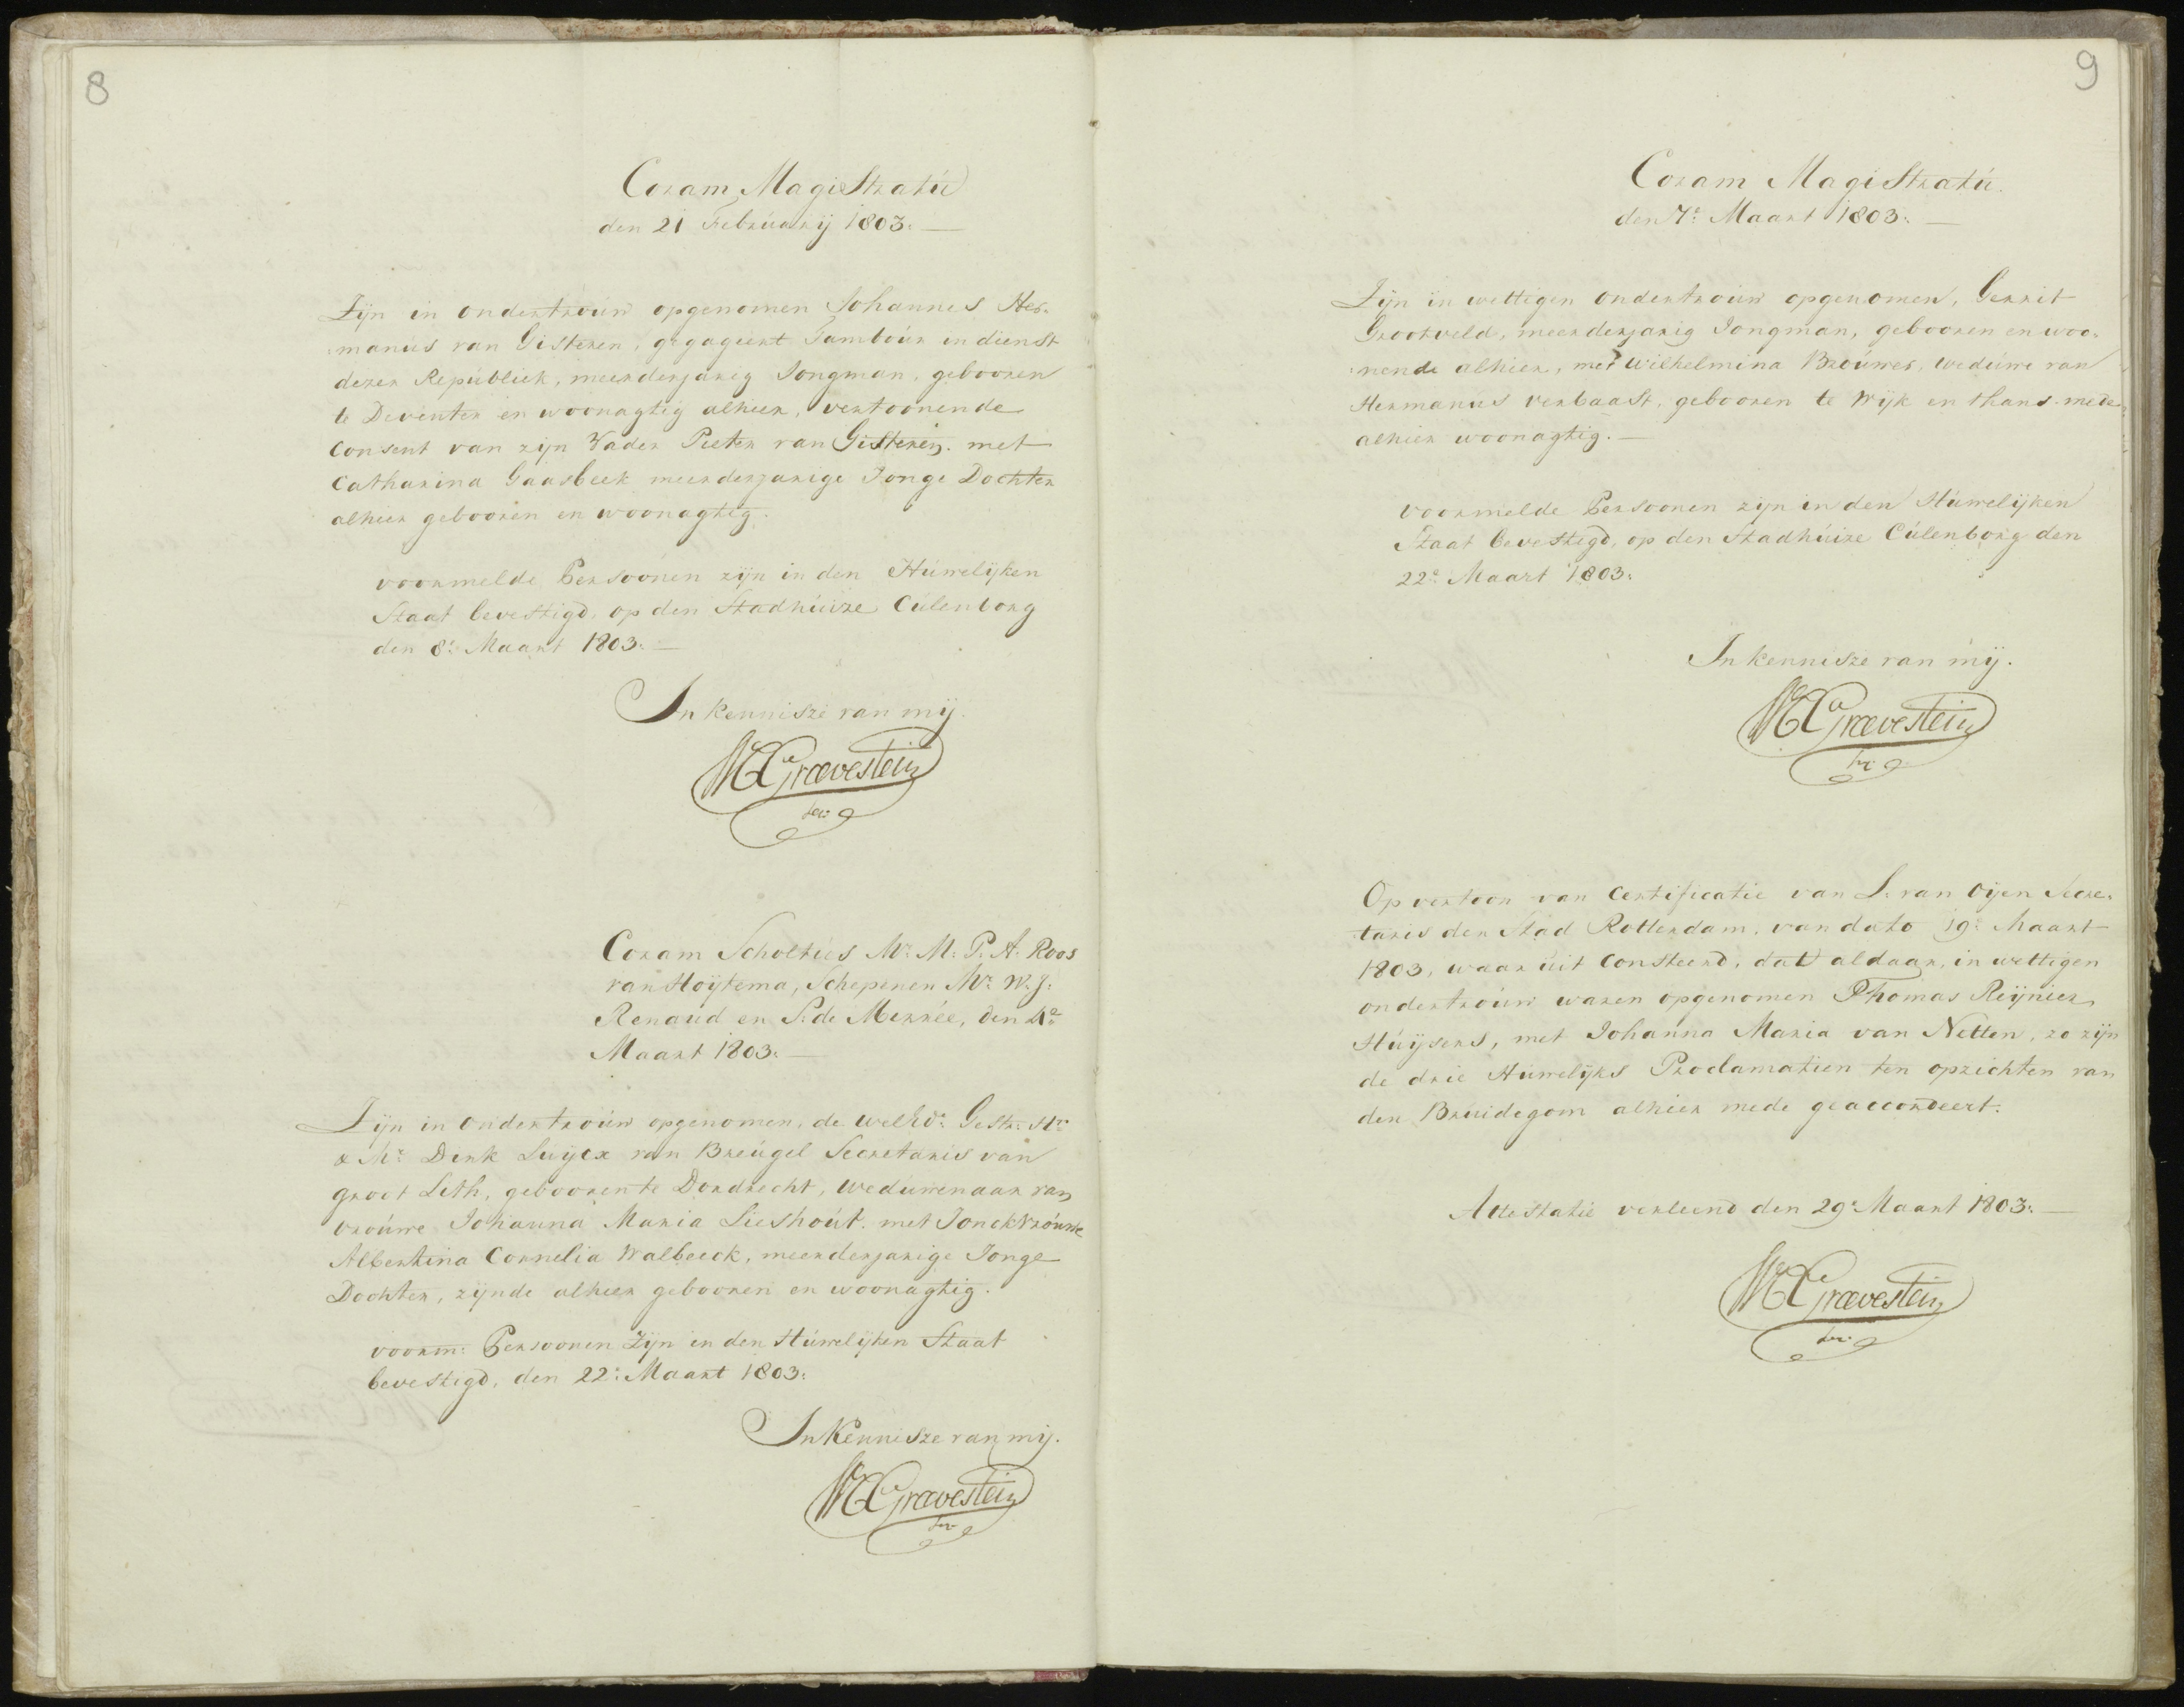 8
Coram Magistratú
den 21 Februarij 1803. —
Zijn in ondertroúw opgenomen Johannes Her-
:manus van Gisteren, gegagiert Tamboúr in dienst
dezer Repúbliek, meerderjarig Jongman, gebooren
te Deventer en woonagtig alhier, vertoonende
Consent van zijn Vader Pieter van Gisteren. met
Catharina Gaasbeek meerderjarige Jonge Dochter
alhier gebooren en woonagtig.
voormelde Persoonen zijn in den Húwelijken
Staat bevestigd, op den Stadhúize Cúlenborg
den 8e: Maart 1803. —
In kennisze van mij.
WCGrevestein
sec:
Coram Scholtús Mr: M: P: A: Roos
van Hoÿtema, Schepenen Mr: W: J:
Renaud en S: de Merrée, den 4e:
Maart 1803. —
Zijn in ondertroúw opgenomen, de welEd: Gestr: Hr
& Mr: Dirk Lúÿcx van Breúgel Secretaris van
groot Lith, gebooren te Dordrecht, wedúwenaar van
vroúwe Johanna Maria Lieshoút. met Jonckvroúwe
Albertina Cornelia Walbeeck, meerderjarige Jonge
Dochter, zijnde alhier gebooren en woonagtig.
voorm: Persoonen Zijn in den Húwelijken Staat
bevestigd, den 22e: Maart 1803.
In Kennisze van mij.
WCGrevestein
sec
9
Coram Magistratú.
den 7e: Maart 1803. —
Zijn in wettigen ondertroúw opgenomen, Gerrit
Grootveld, meerderjarig Jongman, gebooren en woo-
:nende alhier, met Wilhelmina Broúwer, wedúwe van
Hermanus verbaast, gebooren te Wijk en thans mede
alhier woonagtig. —
voormelde Persoonen zijn in den Húwelijken
Staat bevestigd, op den Stadhúize Cúlenborg den
22e: Maart 1803.
In kennisze van mij.
WCGrevestein
sec
Op vertoon van Certificatie van L: van Oijen Secre-
taris der Stad Rotterdam, van dato 19e: Maart
1803, waar úit Consteerd, dat aldaar, in wettigen
ondertroúw waren opgenomen Thomas Reijnier
Húijsers, met Johanna Maria van Netten, zo zijn
de drie Húwelijks Proclamatien ten opzichten van
den Brúidegom alhier mede geaccordeert.
Attestatie verleend den 29e Maart 1803. —
WCGrevestein
sec: